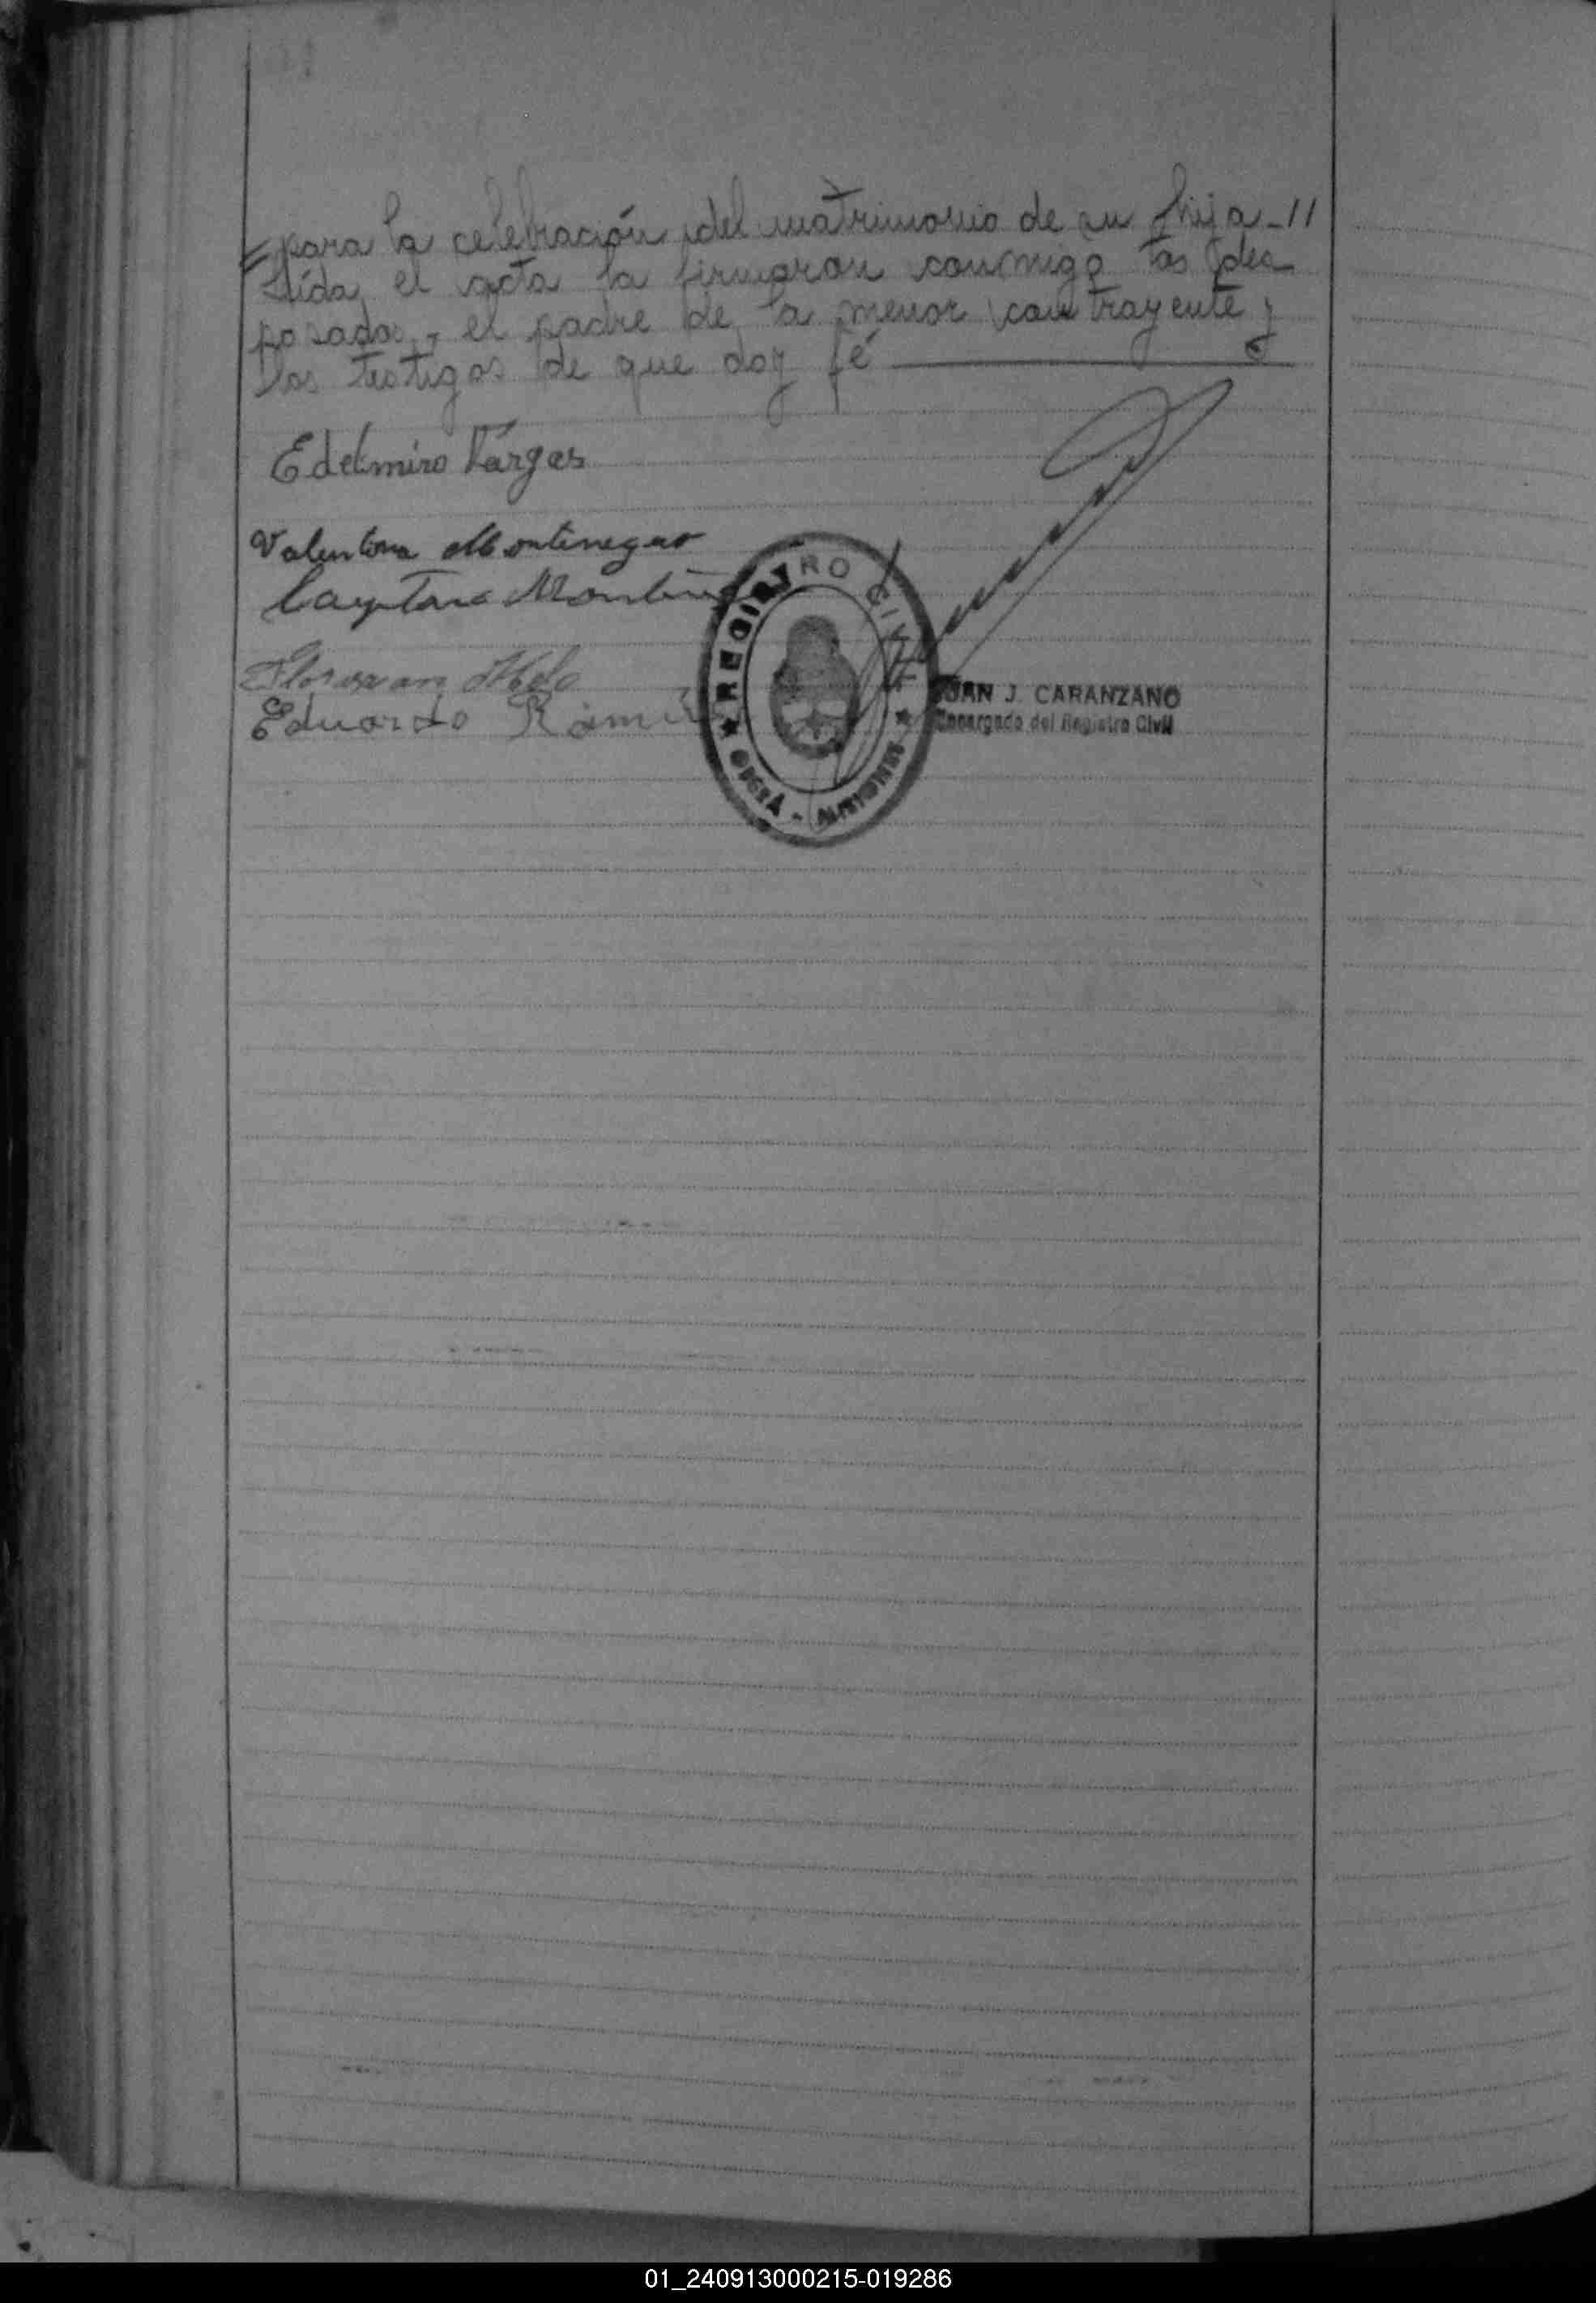 para la celebración del matrimonio de su hija -//
leída el acta la firmaron conmigo los des
posados, el padre de la menor contrayente y
los testigos de que doy fé
Edelmiro Vargas
Valentina Montenegro
Cayetano
Eduardo
REGISTRO CIVIL
OBERÁ - MISIONES
JUAN J. CARANZANO
Encargado del Registro Civil
01_240913000215-019286